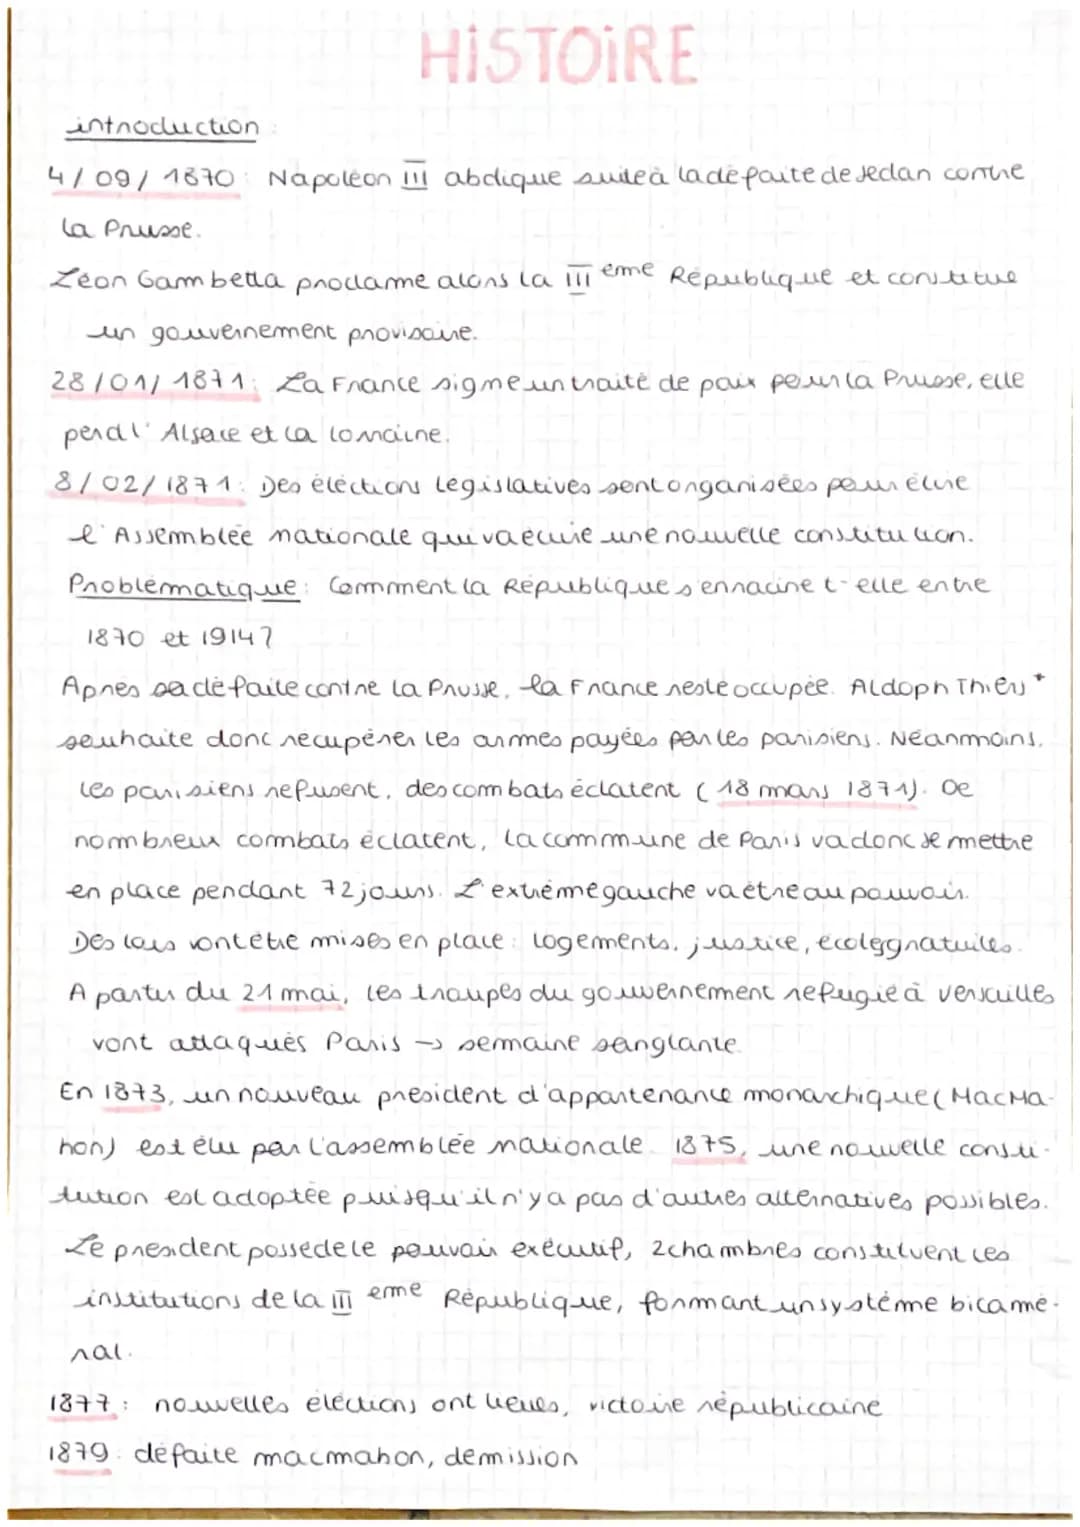 HiSTOiRE
introduction :
4/09/1870 : Napoléon III abdique suite à la défaite de Sedan contre
la Prusse.
Léon Gambetta proclame alors la III ème République et constitue
un gouvernement provisoire.
28/01/1871 : La France signe un traité de paix pour la Prusse, elle
perd l'Alsace et la Lorraine.
8/02/1871 : Des éléctions législatives sont organisées pour élire
l'Assemblée nationale qui va écrire une nouvelle constitution.
Problématique : Comment la République s'enracine t-elle entre
1870 et 1914 ?
Après sa défaite contre la Prusse, la France reste occupée. Aldoph Thiers *
souhaite donc recupérer les armes payées par les parisiens. Néanmoins,
les parisiens refusent, des combats éclatent (18 mars 1871). De
nombreux combats éclatent, la commune de Paris va donc se mettre
en place pendant 72 jours. L'extrême gauche va être au pouvoir.
Des lois vont être mises en place : logements, justice, écoles gratuites.
A partir du 21 mai, les troupes du gouvernement refugié à versailles
vont attaqués Paris → semaine sanglante.
En 1873, un nouveau président d'appartenance monarchique (MacMa-
hon) est élu par l'assemblée nationale. 1875, une nouvelle consti-
tution est adoptée puisqu'il n'y a pas d'autres alternatives possibles.
Le president possède le pouvoir exécutif, 2 chambres constituent les
institutions de la III eme République, formant un système bicamé-
ral.
1877 : nouvelles éléctions ont lieues, victoire républicaine
1879 : défaite macmahon, demission